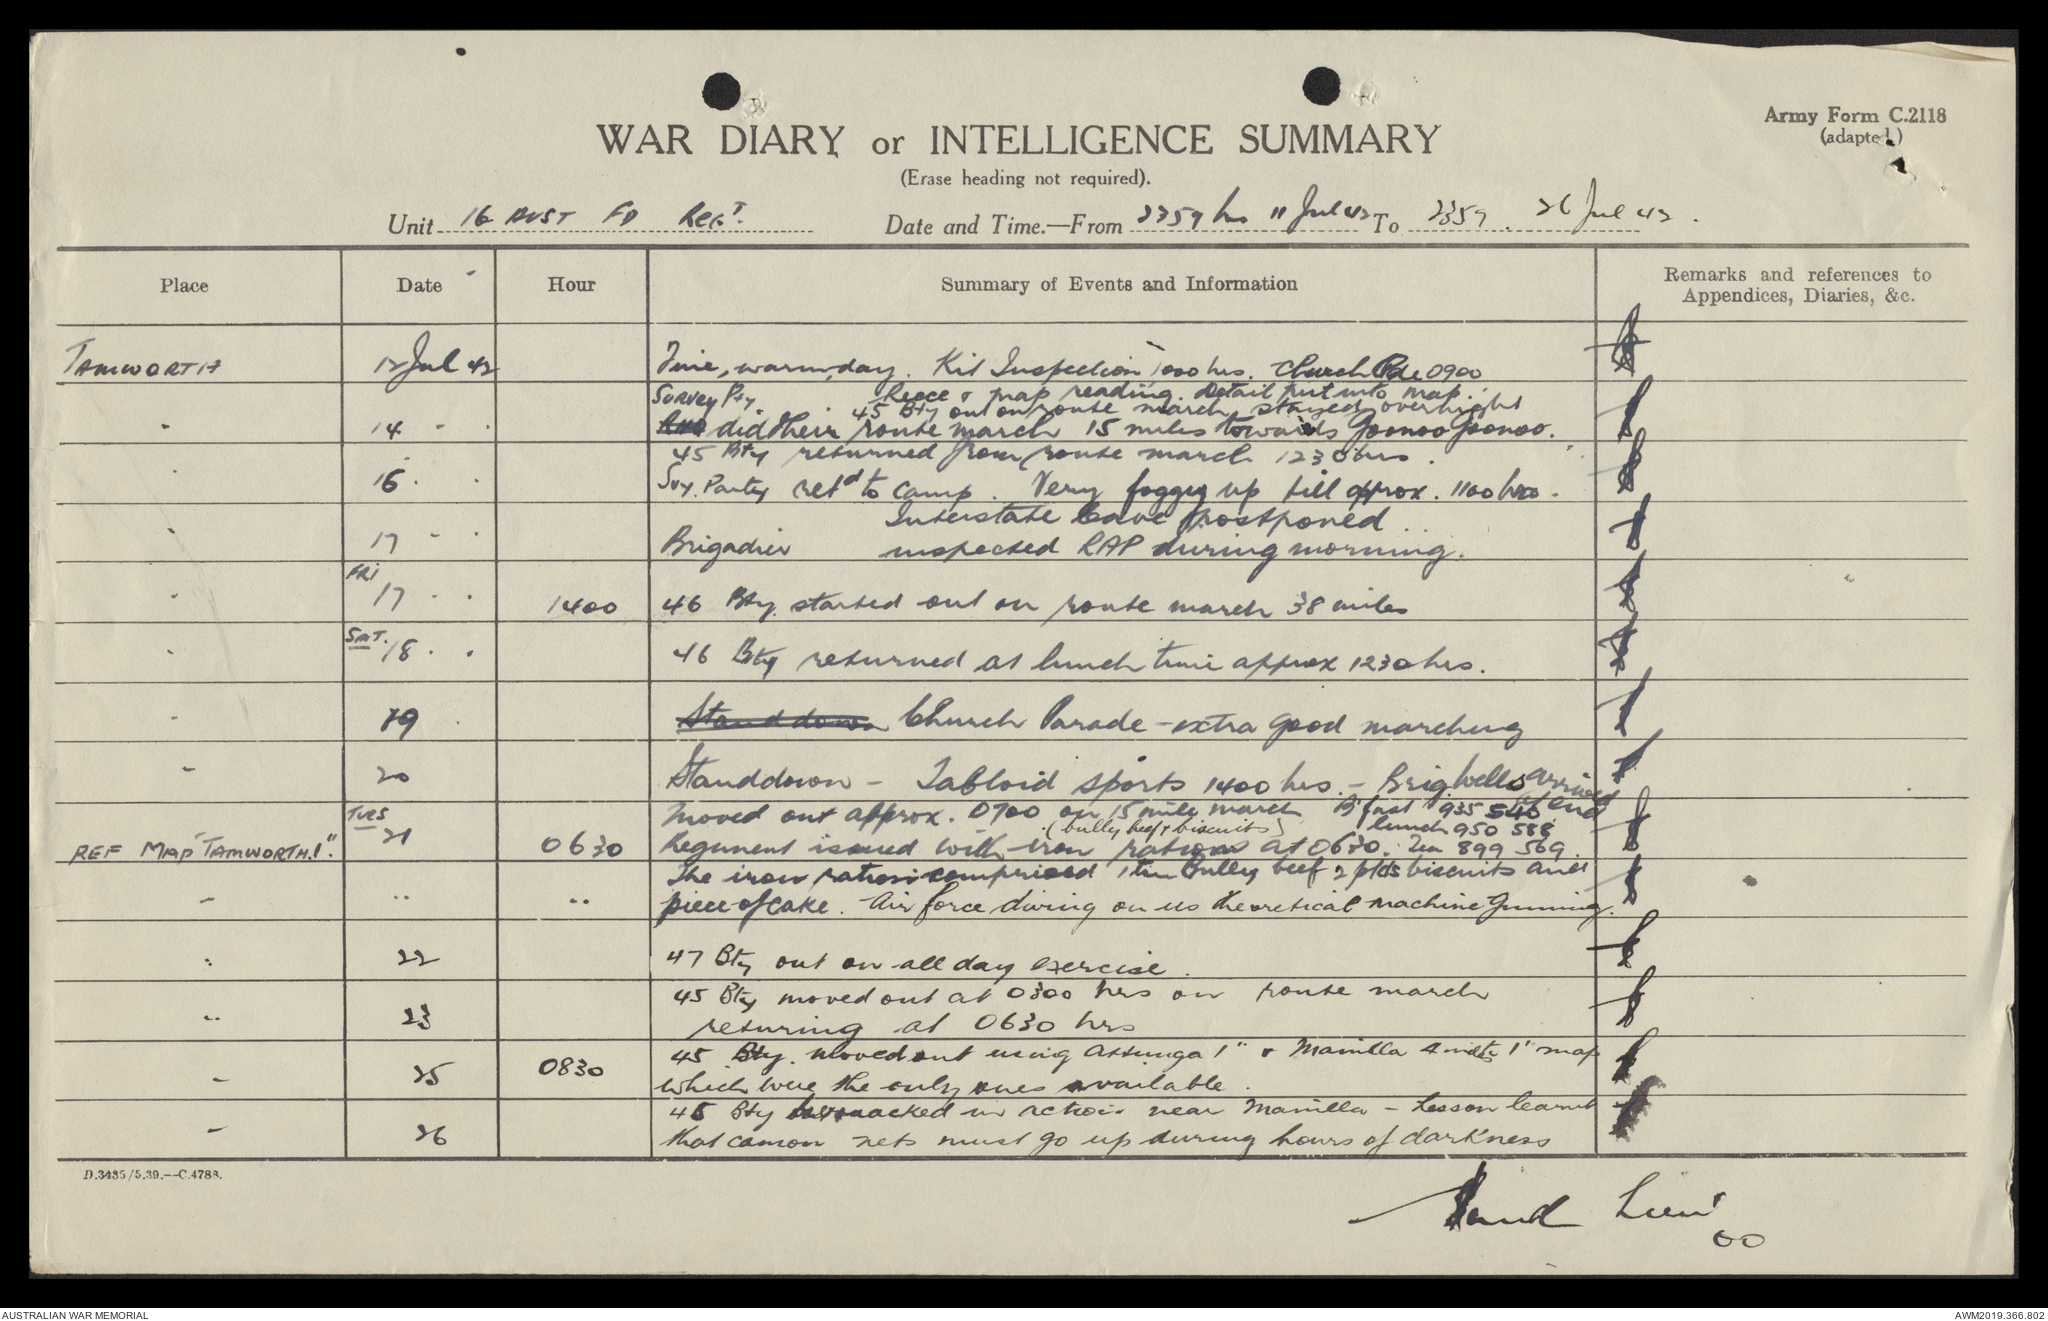 Army Form C.2118
(adapted)
WAR DIARY or INTELLIGENCE SUMMARY
(Erase heading not required).
Unit 16 AUST FD REGT. Date and Time.—From 2359 hrs 11 Jul 42 To 2359 26 Jul 42.
Place Date Hour Summary of Events and Information Remarks and references to
Appendices, Diaries, &c.
TAMWORTH 12 Jul 42 Fine, warm, day. Kit Inspection 1000 hrs. Church Pde 0900
Survey Pty Recce & map reading. Detail put into map.
45 Bty out on route march stayed overnight
" 14 " " did their route march 15 miles towards Goonoo Goonoo.
45 Bty returned from route march 1230 hrs.
" 16 " " Svy. Party retd to camp. Very foggy up till approx. 1100 hrs.
Interstate leave postponed
" 17 " " Brigadier inspected RAP during morning.
FRI
" 17 " " 1400 46 Bty. started out on route march 38 miles
SAT.
" 18 " " 46 Bty returned at lunch time approx 1230 hrs.
" 19 " Stand down Church Parade - extra good marching
" 20 Standdown - Tabloid sports 1400 hrs. - Brig Wells arrived
at end
TUES Moved out approx. 0700 on 15 mile march B'fast 935 540
(bully beef & biscuits) lunch 950 588
REF MAP "TAMWORTH 1". 21 0630 Regiment issued with iron rations at 0630. Tea 899 569.
The iron ration comprised 1 tin Bully beef 2 pkts biscuits and
" " " piece of cake. Air force diving on us theoretical machine gunning.
" 22 47 Bty out on all day exercise.
45 Bty moved out at 0300 hrs on route march
" 23 returing at 0630 hrs
45 Bty. moved out using Attunga 1" & Manilla 1" map
" 25 0830 which were the only ones available.
45 Bty in action near Manilla - Lesson learnt
" 26 that camon nets must go up during hours of darkness
D.3485/5.39.—C.4788.
Lieut
AUSTRALIAN WAR MEMORIAL
AWM2019.366.802